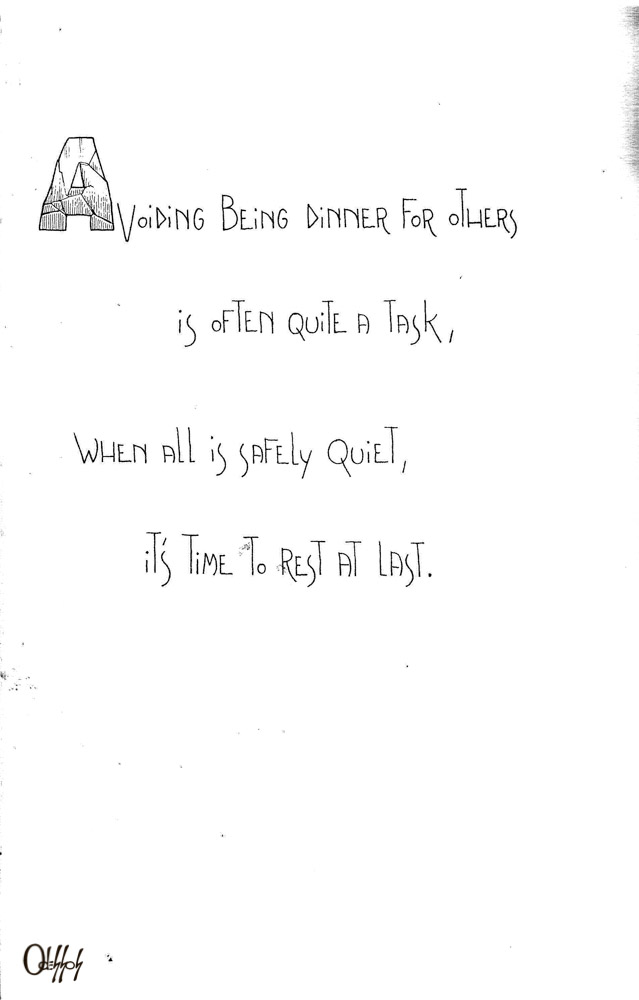 AVOIDING BEING DINNER FOR OTHERS
IS OFTEN QUITE A TASK,
WHEN ALL IS SAFELY QUIET,
IT'S TIME TO REST AT LAST.